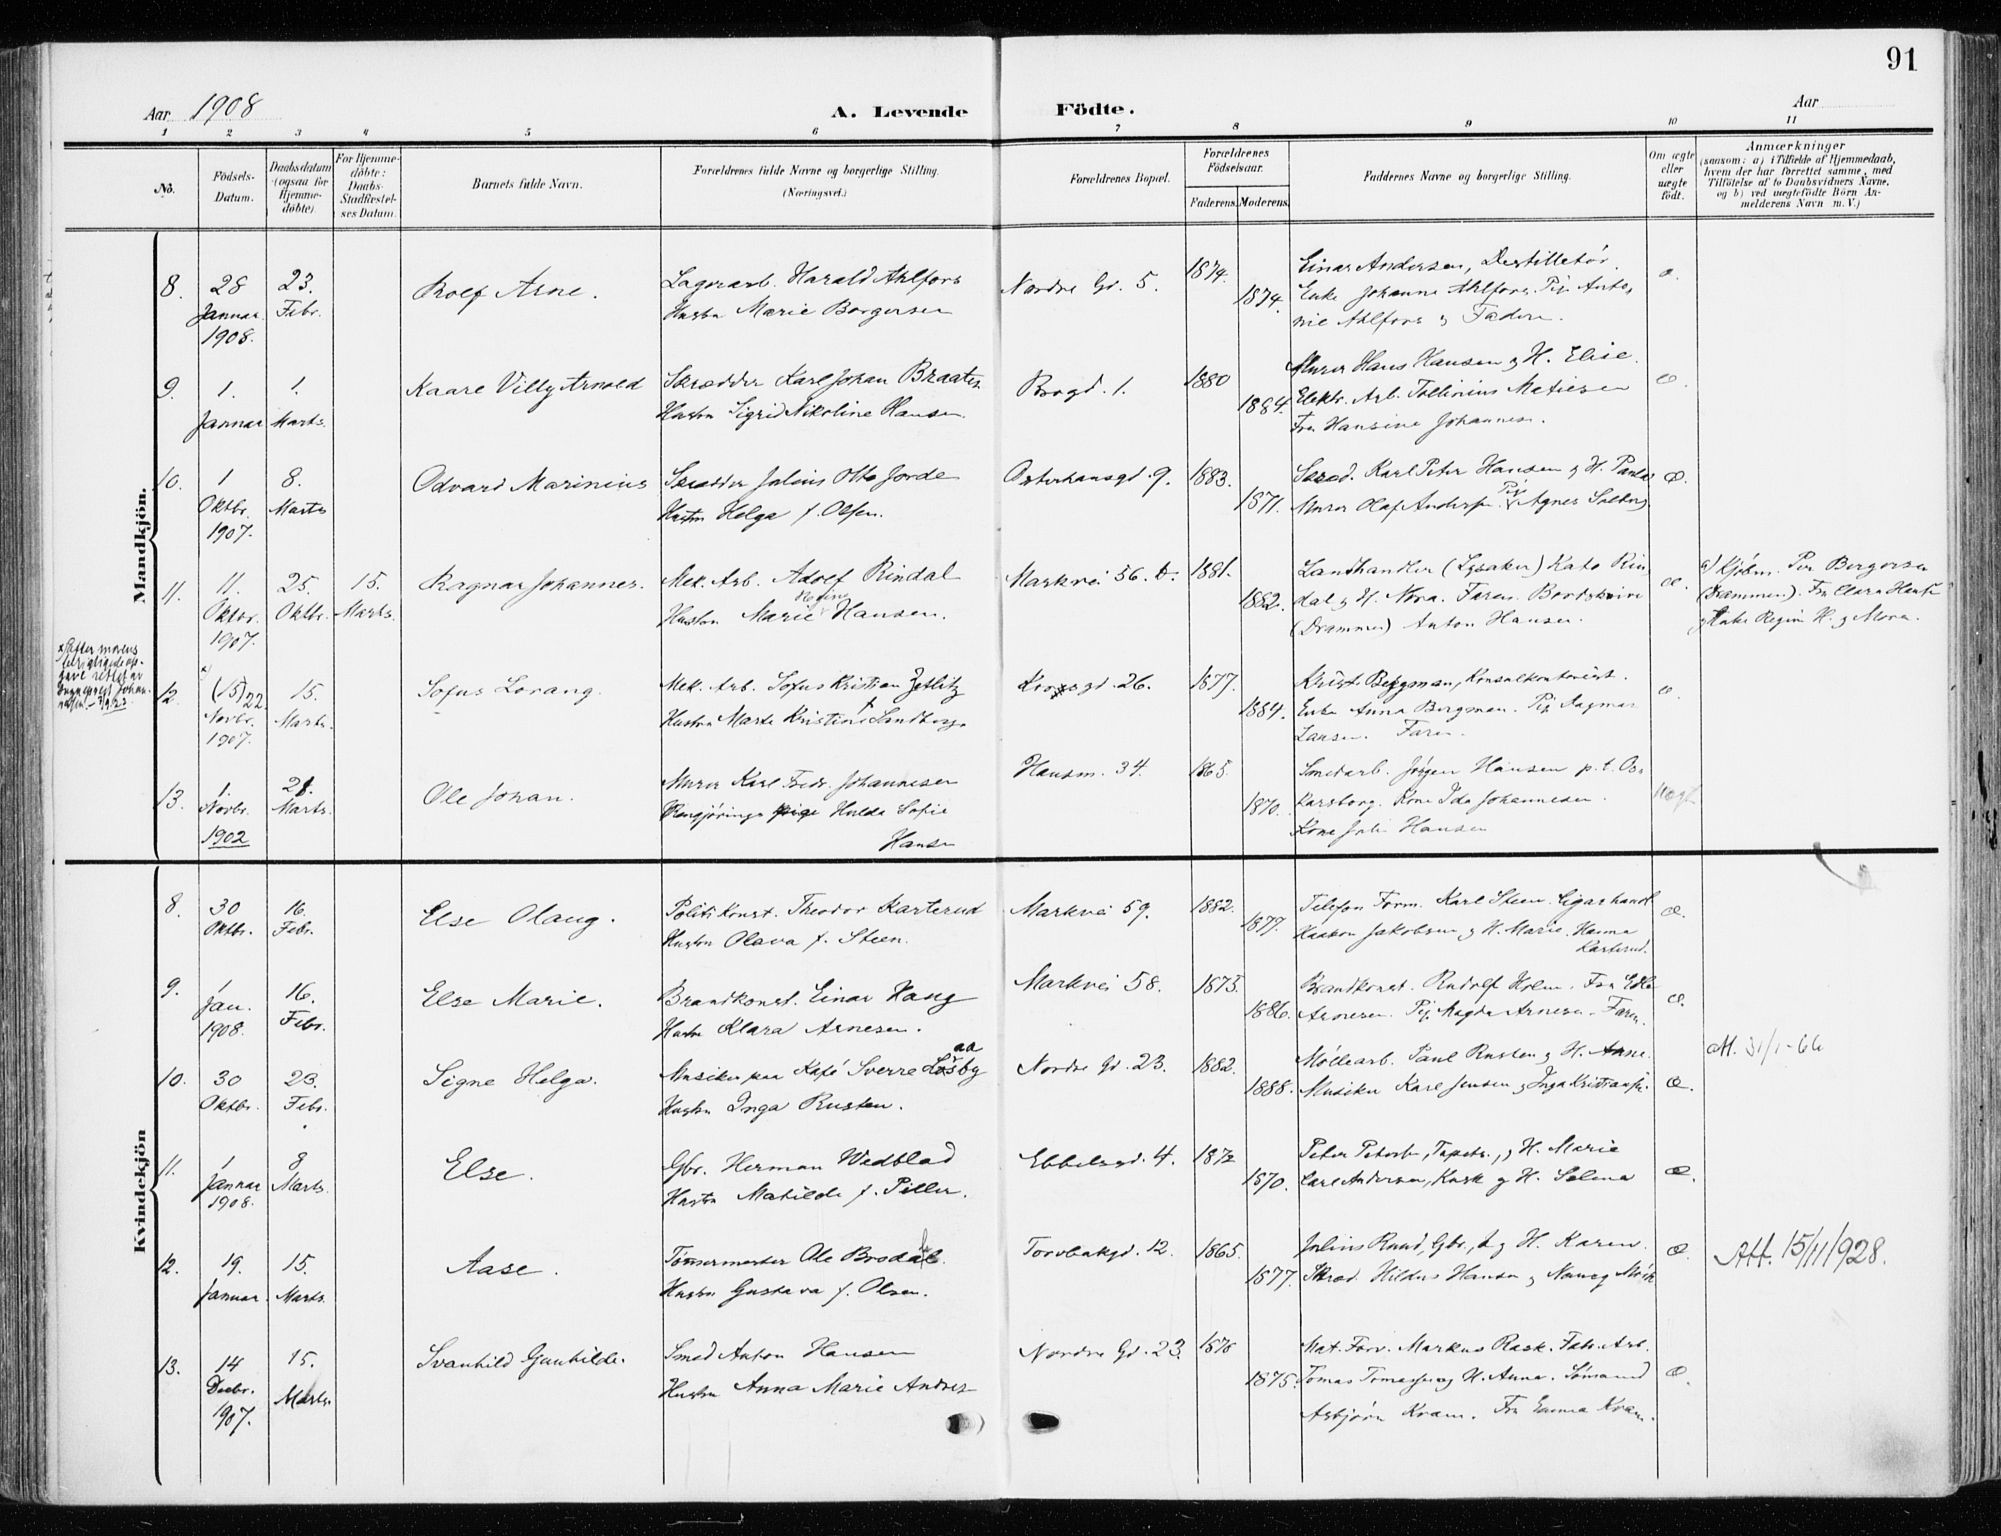 91
Aar 1908
A. Levende Födte.
Aar
1 2 3 4 5 6 7 8 9 10 11
No.
Födsels-Datum.
Daabsdatum (ogsaa for Hjemme-døbte).
For Hjemme-døbte: Daabs-Stadfæstel-ses Datum.
Barnets fulde Navn.
Forældrenes fulde Navne og borgerlige Stilling. (Næringsvei.)
Forældrenes Bopæl.
Forældrenes Födselsaar.
Faderens. Moderens.
Faddernes Navne og borgerlige Stilling.
Om ægte eller uægte födt.
Anmærkninger
(saasom: a) i Tilfælde af Hjemmedaab,
hvem der har forrettet samme, med
Tilföielse af to Daabsvidners Navne,
og b) ved uægtefödte Börn An-
melderens Navn m. V.)
Mandkjön.
8. 28 Januar 1908. 23. Febr.
Rolf Arne.
Lagerarb. Harald Ahlfors
Hustru Marie Borgersen
Nordre Gd. 5. 1874. 1874.
Einar Andersen, Destilletør.
Enke Johanne Ahlfors, Pig. Anto-
nie Ahlfors & Faderen.
9. 1. Januar 1. Marts.
Kaare Villy Arnold
Skrædder Karl Johan Braaten
Hustru Sigrid Nikoline Hansen.
Brogd. 1. 1880 1884.
Murer Hans Hansen & H. Elise.
Elektr. Arb. Tollinius Matiesen
Fru Hansine Johannesen.
10. 1 Oktbr. 1907. 8. Marts
Odvard Marinius
Skrædder Julius Otto Jorde
Hustru Helga f. Olsen.
Osterhausgd. 9. 1883. 1871.
Skræd. Karl Peter Hansen & H. Paula
Murer Olaf Andersen Pig. Agnes Solberg.
11. 11. Oktbr. 1907. 25. Oktbr. 15. Marts.
Ragnar Johannes.
Mek. Arb. Adolf Rindal
Hustru Marie Hansen.
Markvei 56. b. 1881. 1882.
Landhandler (Lysaker) Kato Rin-
dal & H. Nora. Faren.
(Drammen) Anton Hansen.
a) Kjøbm. Per Borgersen
(Drammen). Fru Clara
x) Efter morens
12. (15) 22 Novbr. 1907. 15. Marts.
Sofus Lorang.
Mek. Arb. Sofus Kristian Zetlitz
Hustru Marta Kristine Sandberg
Krogsgd. 26. 1877. 1884.
Krist. Bergman, Konsulkontorist.
Enke Anna Bergman. Pig. Dagmar
Larsen. Faren.
13. 1. Novbr. 1902 28. Marts.
Ole Johan.
Murer Karl Fredr. Johannesen
Rengjørings pige Hulda Sofie
Hansen
Hausm. 34. 1865. 1870.
Smedarb. Jørgen Hansen p. t. Os-
karsborg. Kone Ida Johannesen.
Kone Juli Hansen
Uægte
Kvindekjön
8. 30 Oktbr. 16. Febr.
Else Olaug.
Politikonst. Theodor Karterud
Hustru Olava f. Steen.
Markvei 59. 1882. 1877.
Telefon Form. Karl Steen. Cigarhandl.
Haakon Jakobsen & H. Marie. Hanna
Karterud.
Æ.
9. 1 Jan. 1908. 16. Febr.
Else Marie.
Brandkonst. Einar Haug
Hustru Klara Arnesen.
Markvei 58. 1875. 1886.
Brandkonst. Rudolf Holm. Fru Edle
Arnesen. Pig. Magda Arnesen. Faren.
Æ.
10. 30 Oktbr. 23. Febr.
Signe Helga.
Musiker paa Kafé Sverre Losby
aa
Hustru Inga Rusten.
Nordre Gd. 23. 1882. 1888.
Møllearb. Paul Rusten & H. Anne.
Musiker Karl Jensen & Inga Kristiansen.
Æ.
M. 31/1-66
11. 1 Januar 1908. 8 Marts.
Else.
Gbr. Herman Wedblad
Hustru Matilde f. Piller.
Ebbelsgd. 4. 1872 1870.
Peter Petersen, Tapetr., & H. Marie
Carl Andersen, Kusk & H. Selma
Æ.
12. 19. Januar. 15. Marts.
Aase.
Tømmermester Ole Brodal.
Hustru Gustava f. Olsen.
Torvbakgd. 12. 1865. 1877.
Julius Ruud, Gbr., & H. Karen.
Skræd. Hildus Hansen &
Æ.
Att. 15/11/928.
13. 14 Decbr. 1907. 15. Marts.
Svanhild Gunhilde.
Smed Anton Hansen
Hustru Anna Marie Andres
Nordre Gd. 23. 1876 1875.
Mat. Forv. Markus Rask. Fab. Arb.
Tomas Tomassen & H. Anna.
Asbjørn Kvam. Fru Emma Kvam.
Æ.